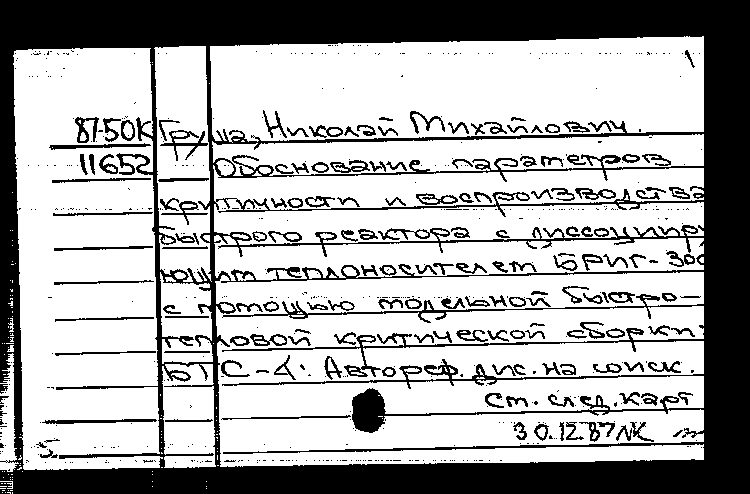 1
87-50К Груша, Николай Михайлович.
11652 Обоснование параметров
критичности и воспроизводства
быстрого реактора с диссоцииру
ющим теплоносителем БРИГ-300
с помощью модельной быстро-
тепловой критической сборки:
БТС-4: Автореф. дис. на соиск.
См. след. карт
30.12.87 ЛК
5.